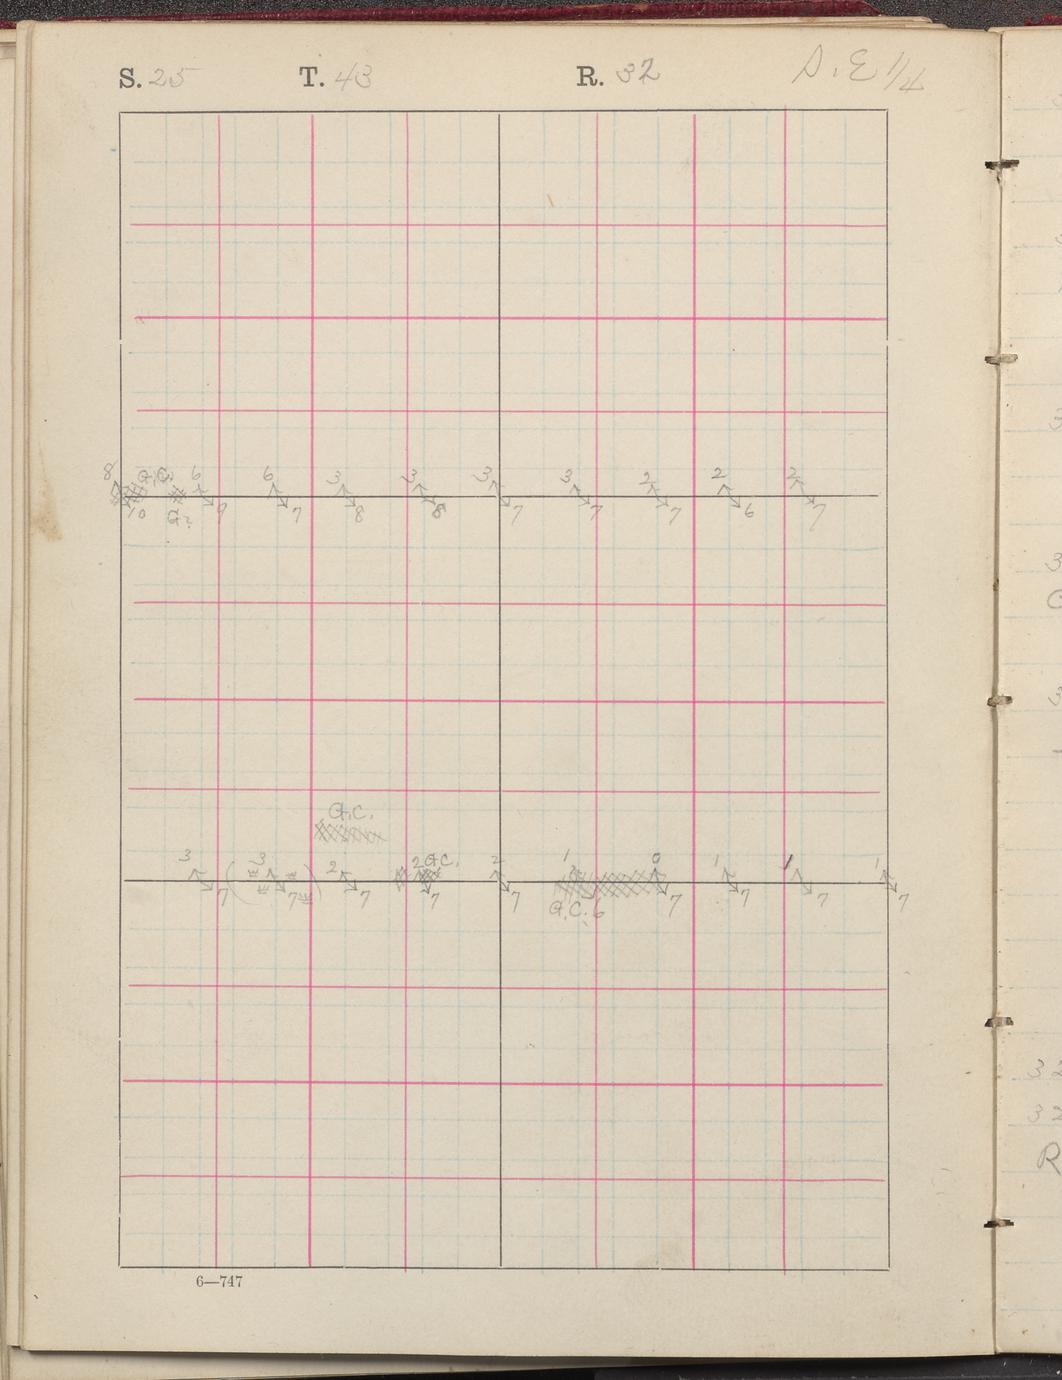 S. 25 T. 43 R. 32 S.E 1/4
8 G.C. 6 6 3 3 3 3 2 2 2
10 G? 9 7 8 8 7 7 7 6 7
G.C.
3 3 2 2 G.C. 2 1 0 1 1 1
7 7 7 7 7 G.C. 6 7 7 7 7
6—747
3
3
3
3 2
3 2
R